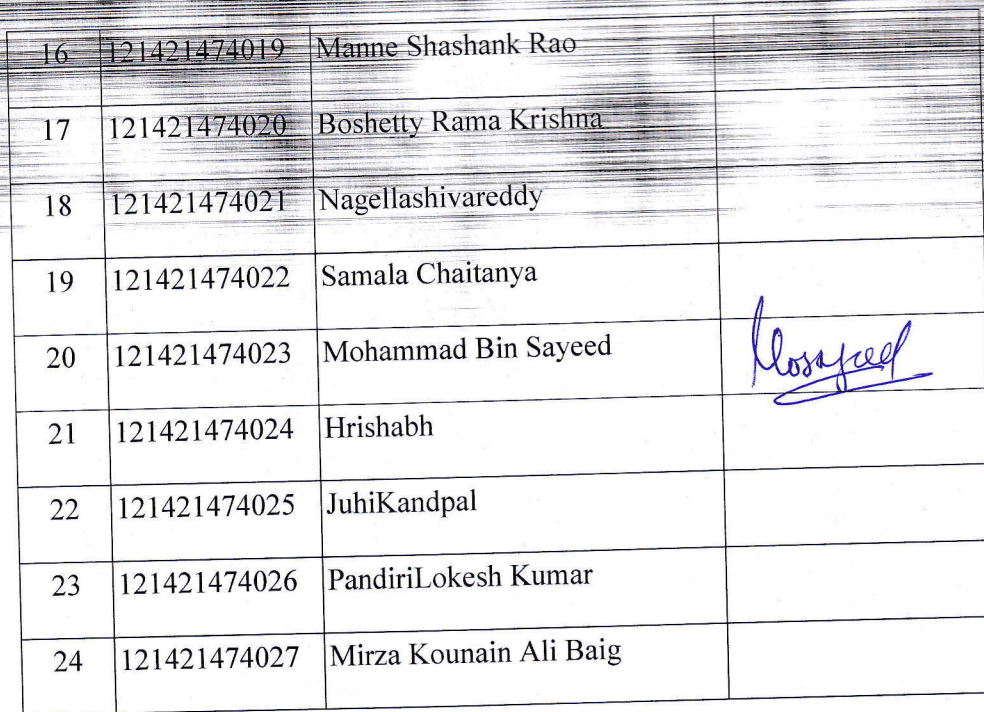 16 121421474019 Manne Shashank Rao
17 121421474020 Boshetty Rama Krishna
18 121421474021 Nagellashivareddy
19 121421474022 Samala Chaitanya
20 121421474023 Mohammad Bin Sayeed
21 121421474024 Hrishabh
22 121421474025 JuhiKandpal
23 121421474026 PandiriLokesh Kumar
24 121421474027 Mirza Kounain Ali Baig